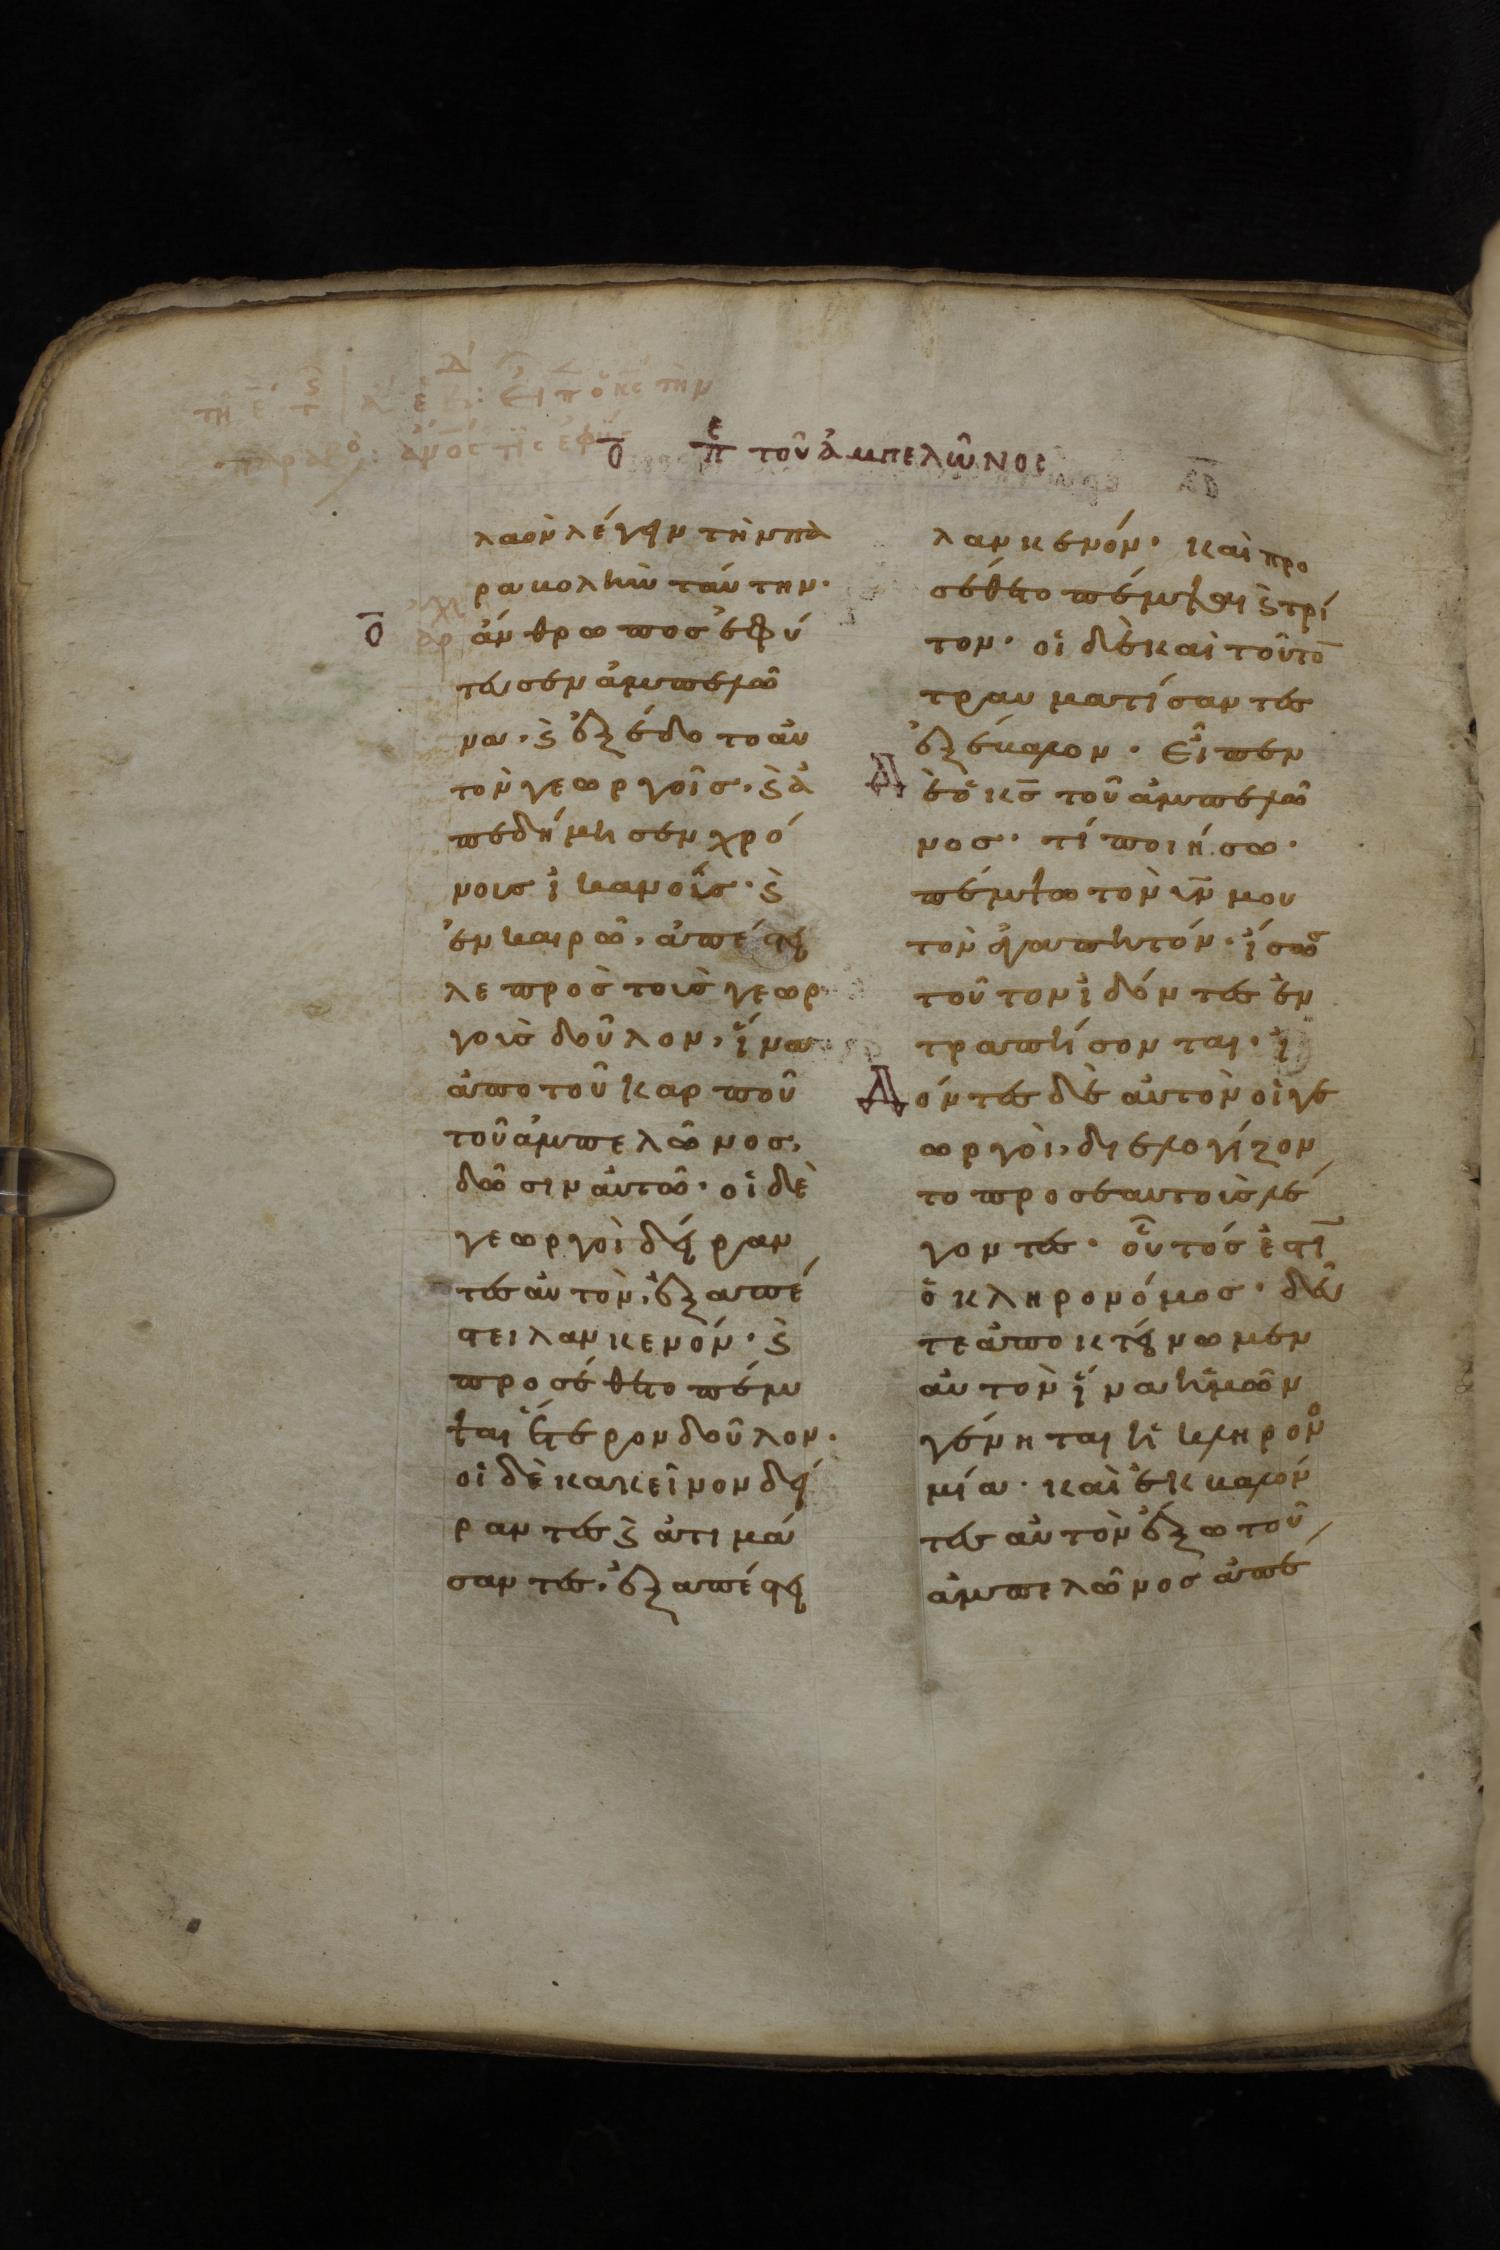 ο̅ πε τοῦ ἀμπελῶνος
λαὸν λέγειν τὴν πα
ραβολὴν ταύτην·
ο̅ ἄνθρωποσ ἐφύ
τευσεν ἀμπελῶ
να, ϗ ἐξέδοτο αὐ
τὸν γεωργοῖσ, ϗ ἀ
πεδήμησεν χρό
νουσ ἱκανοὺσ· ϗ
ἐν καιρῶ, ἀπέστει
λε πρὸσ τοὺσ γεωρ
γοὺσ δοῦλον, ἵνα
ἀπο τοῦ καρποῦ
τοῦ ἀμπελῶνοσ,
δῶσιν αὐτῶ· οἱ δὲ
γεωργοὶ δείραν
τεσ αὐτὸν, ἐξαπέ
στειλαν κενόν· ϗ
προσέθετο πέμ
ψαι ἕτερον δοῦλον·
οἱ δὲ κακεῖνον δεί
ραντεσ ϗ ἀτιμά
σαντεσ, ἐξαπέστει
λαν κενόν· καὶ προ
σέθετο πέμψαι ϗ τρί
τον· οἱ δὲ καὶ τοῦτο̅
τραυματίσαντεσ
ἐξέβαλον· Εἶπεν
Δ ὲ ὁ κ̅σ̅ τοῦ ἀμπελῶ
νοσ· τί ποιήσω·
πέμψω τὸν υ̅ν̅ μου
τὸν ἀγαπητόν· ἴσωσ
τοῦτον ἰδόντεσ ἐν
τραπήσονται· ἰ
Δ όντεσ δὲ αὐτὸν οἱ γε
ωργοὶ, διελογίζον
το προσ ἑαυτοὺσ λέ
γοντεσ· οὗτόσ ἐστι̅
ὁ κληρονόμοσ· δεῦ
τε ἀποκτείνωμεν
αὐτὸν ἵνα ἡμῶν
γένηται ἡ κληρονο
μία· καὶ ἐκβαλόν
τεσ αὐτὸν ἔξω τοῦ
ἀμπελῶνοσ ἀπέ